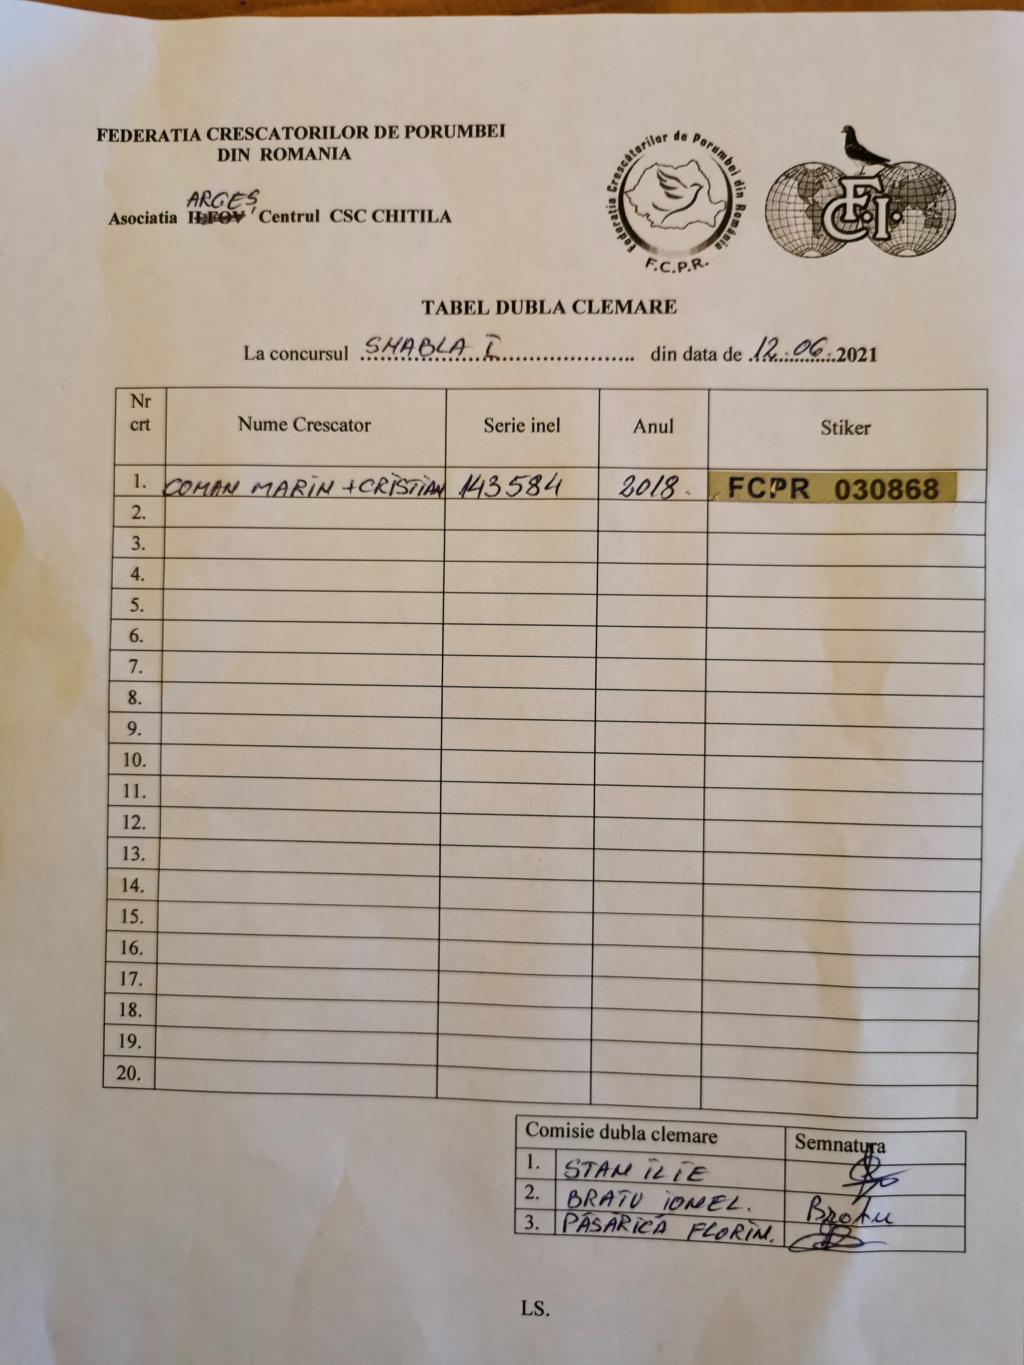 FEDERATIA CRESCATORILOR DE PORUMBEI
DIN ROMANIA
ARGES
Asociatia ILFOV Centrul CSC CHITILA
Federatia Crescătorilor de Porumbei din România
F.C.P.R.
F.C.I.
TABEL DUBLA CLEMARE
La concursul SHABLA I din data de 12.06.2021
Nr crt Nume Crescator Serie inel Anul Stiker
1. COMAN MARIN + CRISTIAN 143584 2018. FCPR 030868
2.
3.
4.
5.
6.
7.
8.
9.
10.
11.
12.
13.
14.
15.
16.
17.
18.
19.
20.
Comisie dubla clemare Semnatura
1. STAN ILIE
2. BRATU IONEL. Bratu
3. PĂSĂRICĂ FLORIN.
LS.